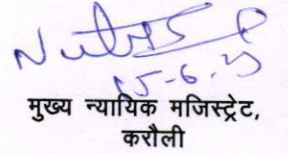 15-6-23
मुख्य न्यायिक मजिस्ट्रेट,
करौली